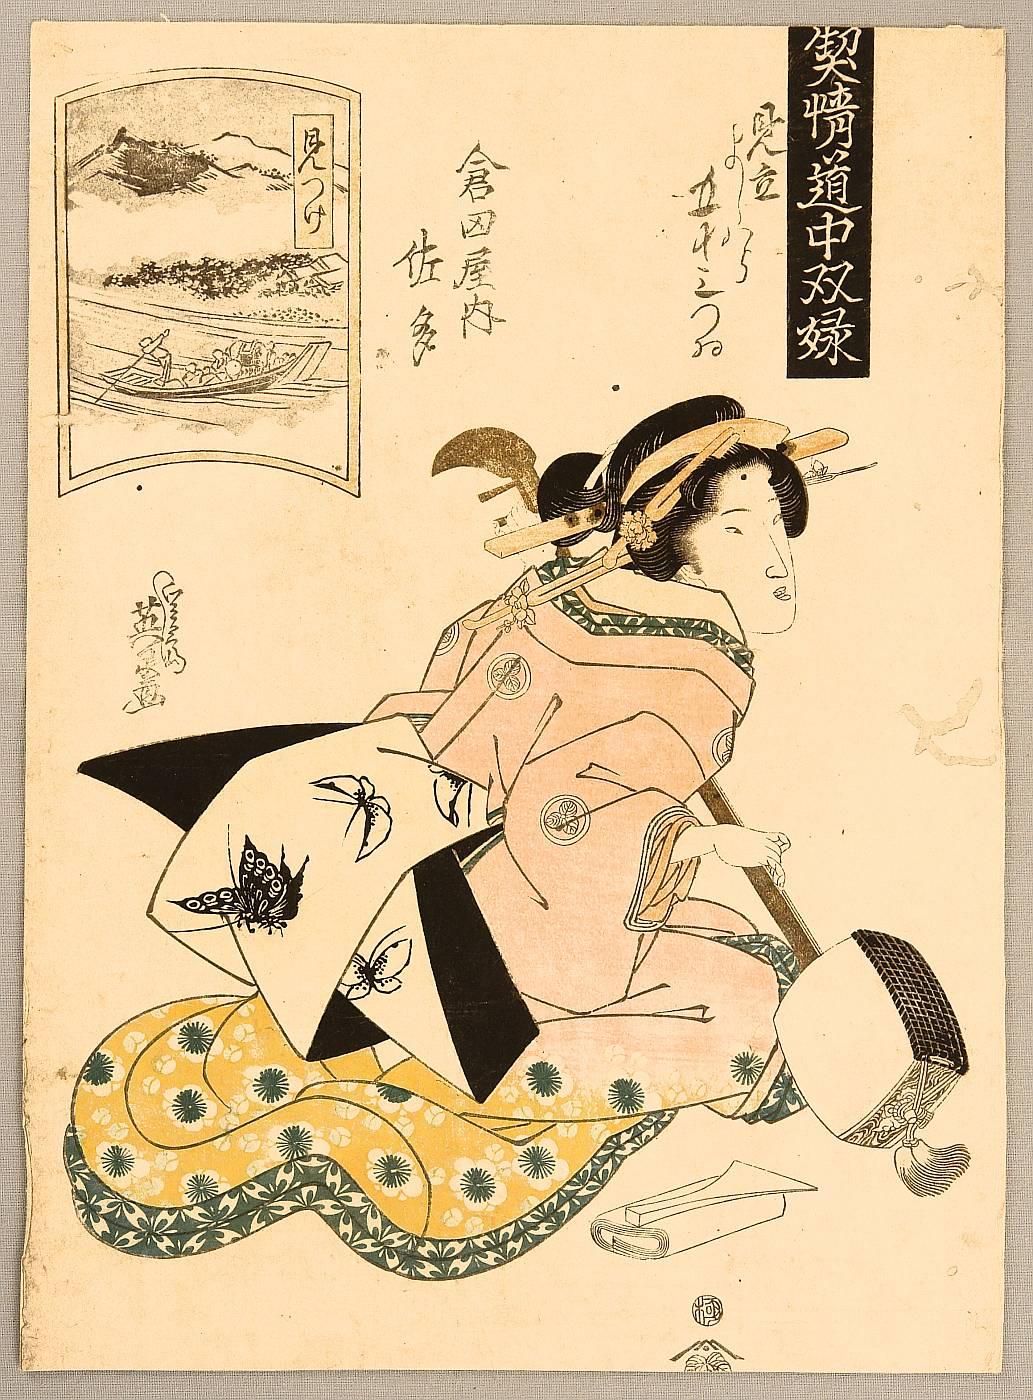 契情道中双娽
見立
よしはら
五十三つゐ
倉田屋内
佐多
見つけ
渓斎
英泉画
極